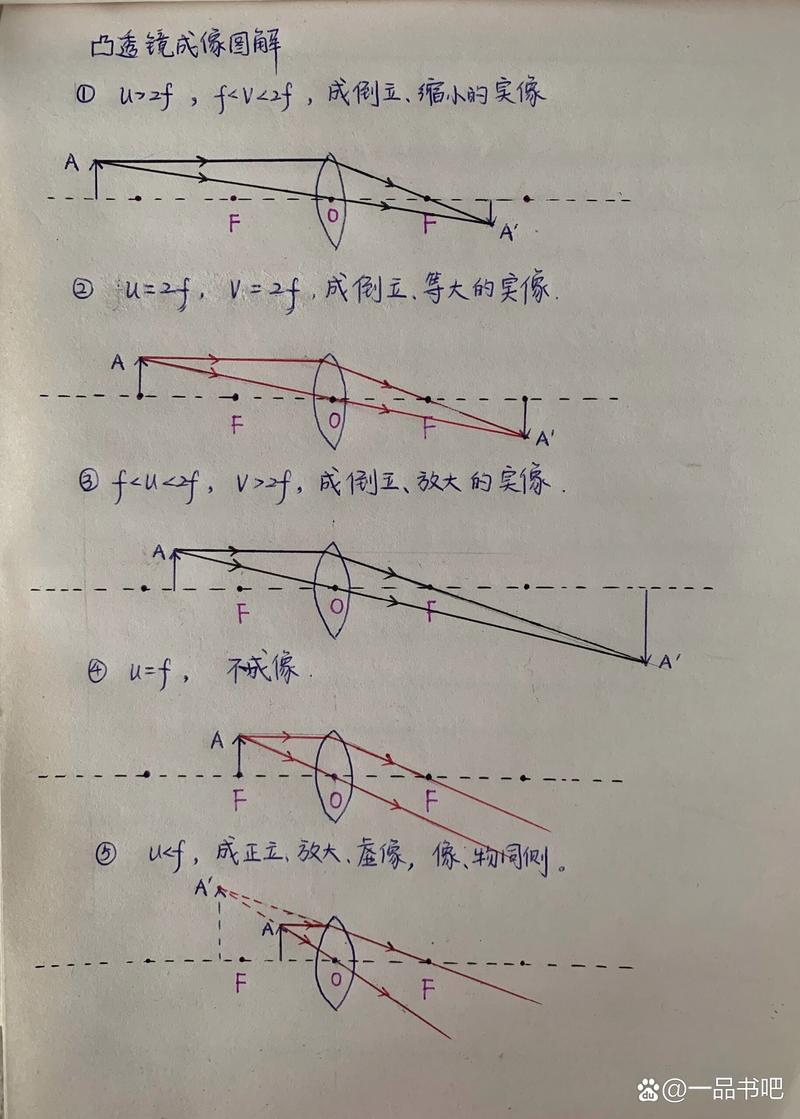 凸透镜成像图解
① u>2f，f<v<2f，成倒立、缩小的实像
A
F O F A'
② u=2f，v=2f，成倒立、等大的实像.
A
F O F A'
③ f<u<2f，v>2f，成倒立、放大的实像.
A
F O F A'
④ u=f，不成像.
A
F O F
⑤ u<f，成正立、放大、虚像，像、物同侧。
A'
A
F O F
du @一品书吧